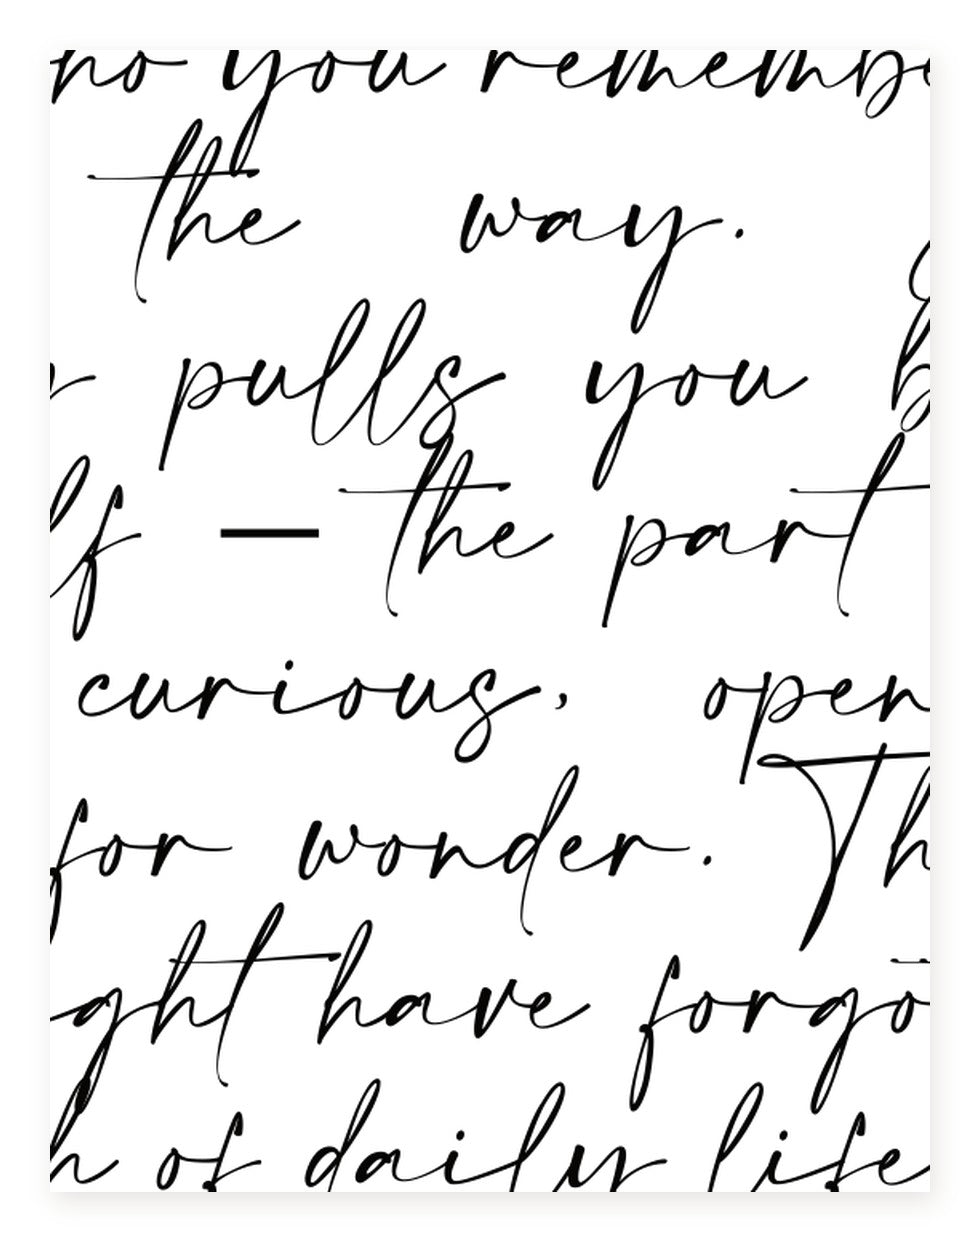 you
the way.
pulls you
— the part
curious, open
for wonder. Th
ght have forgo
of daily life